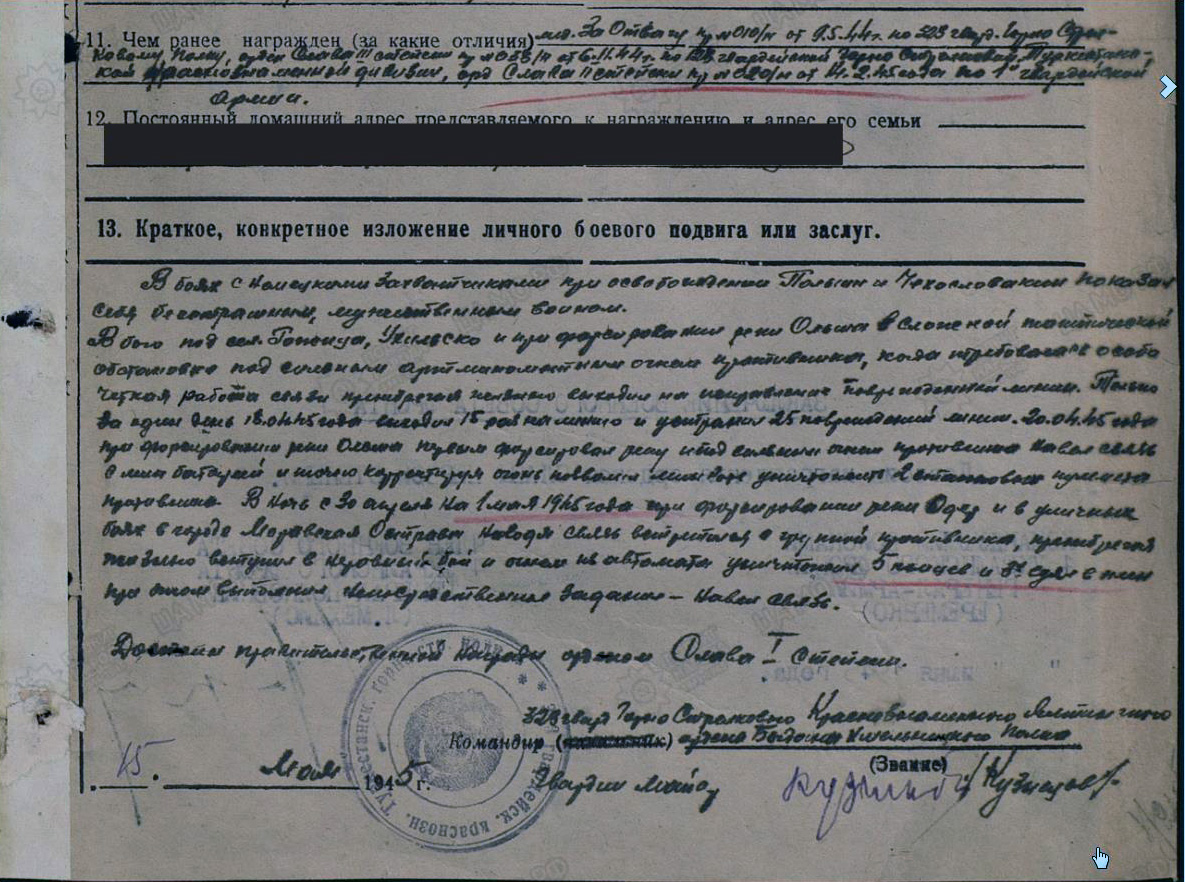 11. Чем ранее награжден (за какие отличия) мед. За Отвагу пр № 010/н от 9.5.44г. по 323 гвард. Горно Стрел-
ковому Полку, орден Слава III степени пр № 058/н от 6.11.44г. по 128 гвардейской Горно Стрелковой Туркестанс-
кой Краснознаменной дивизии, орд Слава II степени пр № 020/н от 14.2.45 года по 1ой гвардейской
армии.
12. Постоянный домашний адрес представляемого к награждению и адрес его семьи
13. Краткое, конкретное изложение личного боевого подвига или заслуг.
В боях с Немецкими Захватчиками при освобождении Польши и Чехословакии показал
себя бесстрашным, мужественным воином.
В бою под сел. и при форсировании реки Ольша в сложной тактической
обстановке под сильным артминометным огнем противника, когда требовалась особо
четкая работа связи выходил на исправление поврежденной линии. Только
за один день 18.04.45 года выходил 15 раз на линию и устранил 25 повреждений линии. 20.04.45 года
при форсировании реки Ольша первым форсировал реку и под сильным огнем противника навел связь
с мин батареей и точно корректируя огонь позволил уничтожить 2 станковых пулемета
противника. В Ночь с 30 апреля на 1 мая 1945 года при форсировании реки Одер и в уличных
боях в городе Моравская Острава Наводя Связь встретился с группой противника,
вступил в неровный бой и огнем из автомата уничтожил 5 немцев и 3х взял в плен
при этом выполнил непосредственное Задание – Навел связь.
Достоин правительственной награды орденом Слава I Степени.
323 гвард Горно Стрелкового Краснознаменного
Командир (начальник) ордена Богдана Хмельницкого Полка
(Звание)
15. Мая 1945 г. Гвардии Майор /Кузнецов/